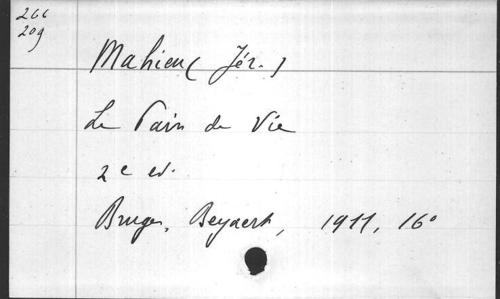 266
209
Mahieu (Jér.)
Le Pain de Vie
2e ed.
Bruges, Beyaert, 1911, 16°